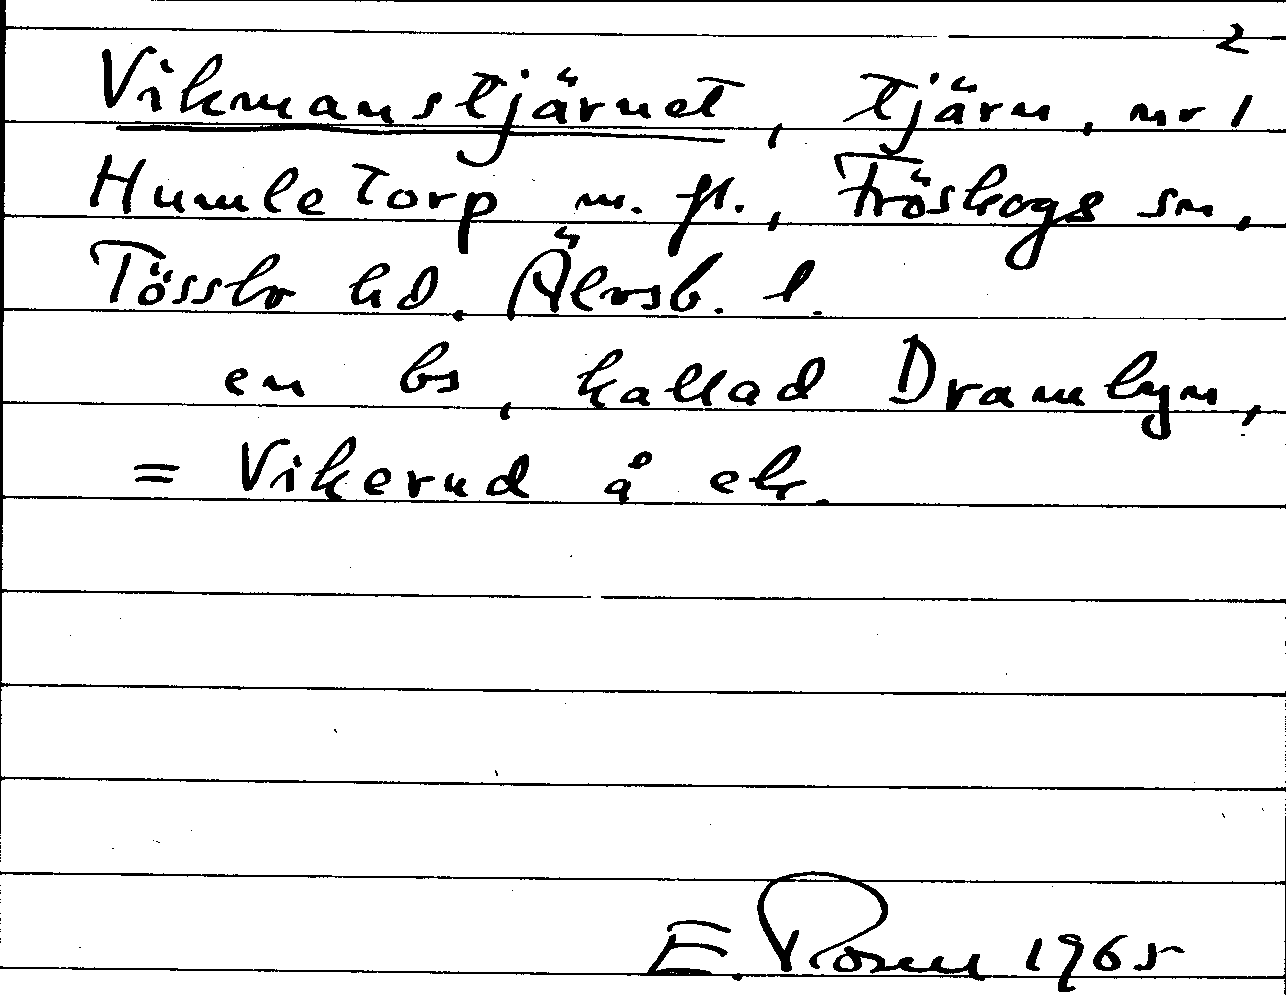 2
Vikmanstjärnet, tjärn, nr 1
Humletorp m. fl., Fröskogs sn,
Tössbo hd. Älvsb. l.
en bs, kallad Dramlyn,
= Vikerud å ek.
E. Rosell 1965